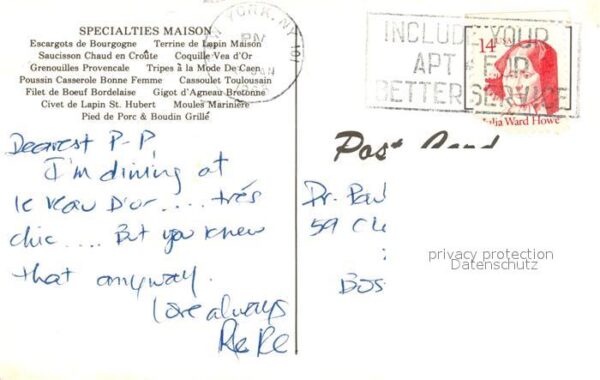 SPECIALTIES MAISON
Escargots de Bourgogne Terrine de Lapin Maison
Saucisson Chaud en Croûte Coquille Vea d'Or
Grenouilles Provencale Tripes à la Mode De Caen
Poussin Casserole Bonne Femme Cassoulet Toulousain
Filet de Boeuf Bordelaise Gigot d'Agneau Bretonne
Civet de Lapin St. Hubert Moules Marinière
Pied de Porc & Boudin Grillé
YORK, NY 101
PM
INCLUDE YOUR
APT # FOR
BETTER SERVICE
14 USA
Julia Ward Howe
Post Card
Dearest P-P,
I'm dining at
le Veau D'or.... très
chic.... But you knew
that anyway.
love always
ReRe
Dr. Paul
59
BOS
privacy protection
Datenschutz